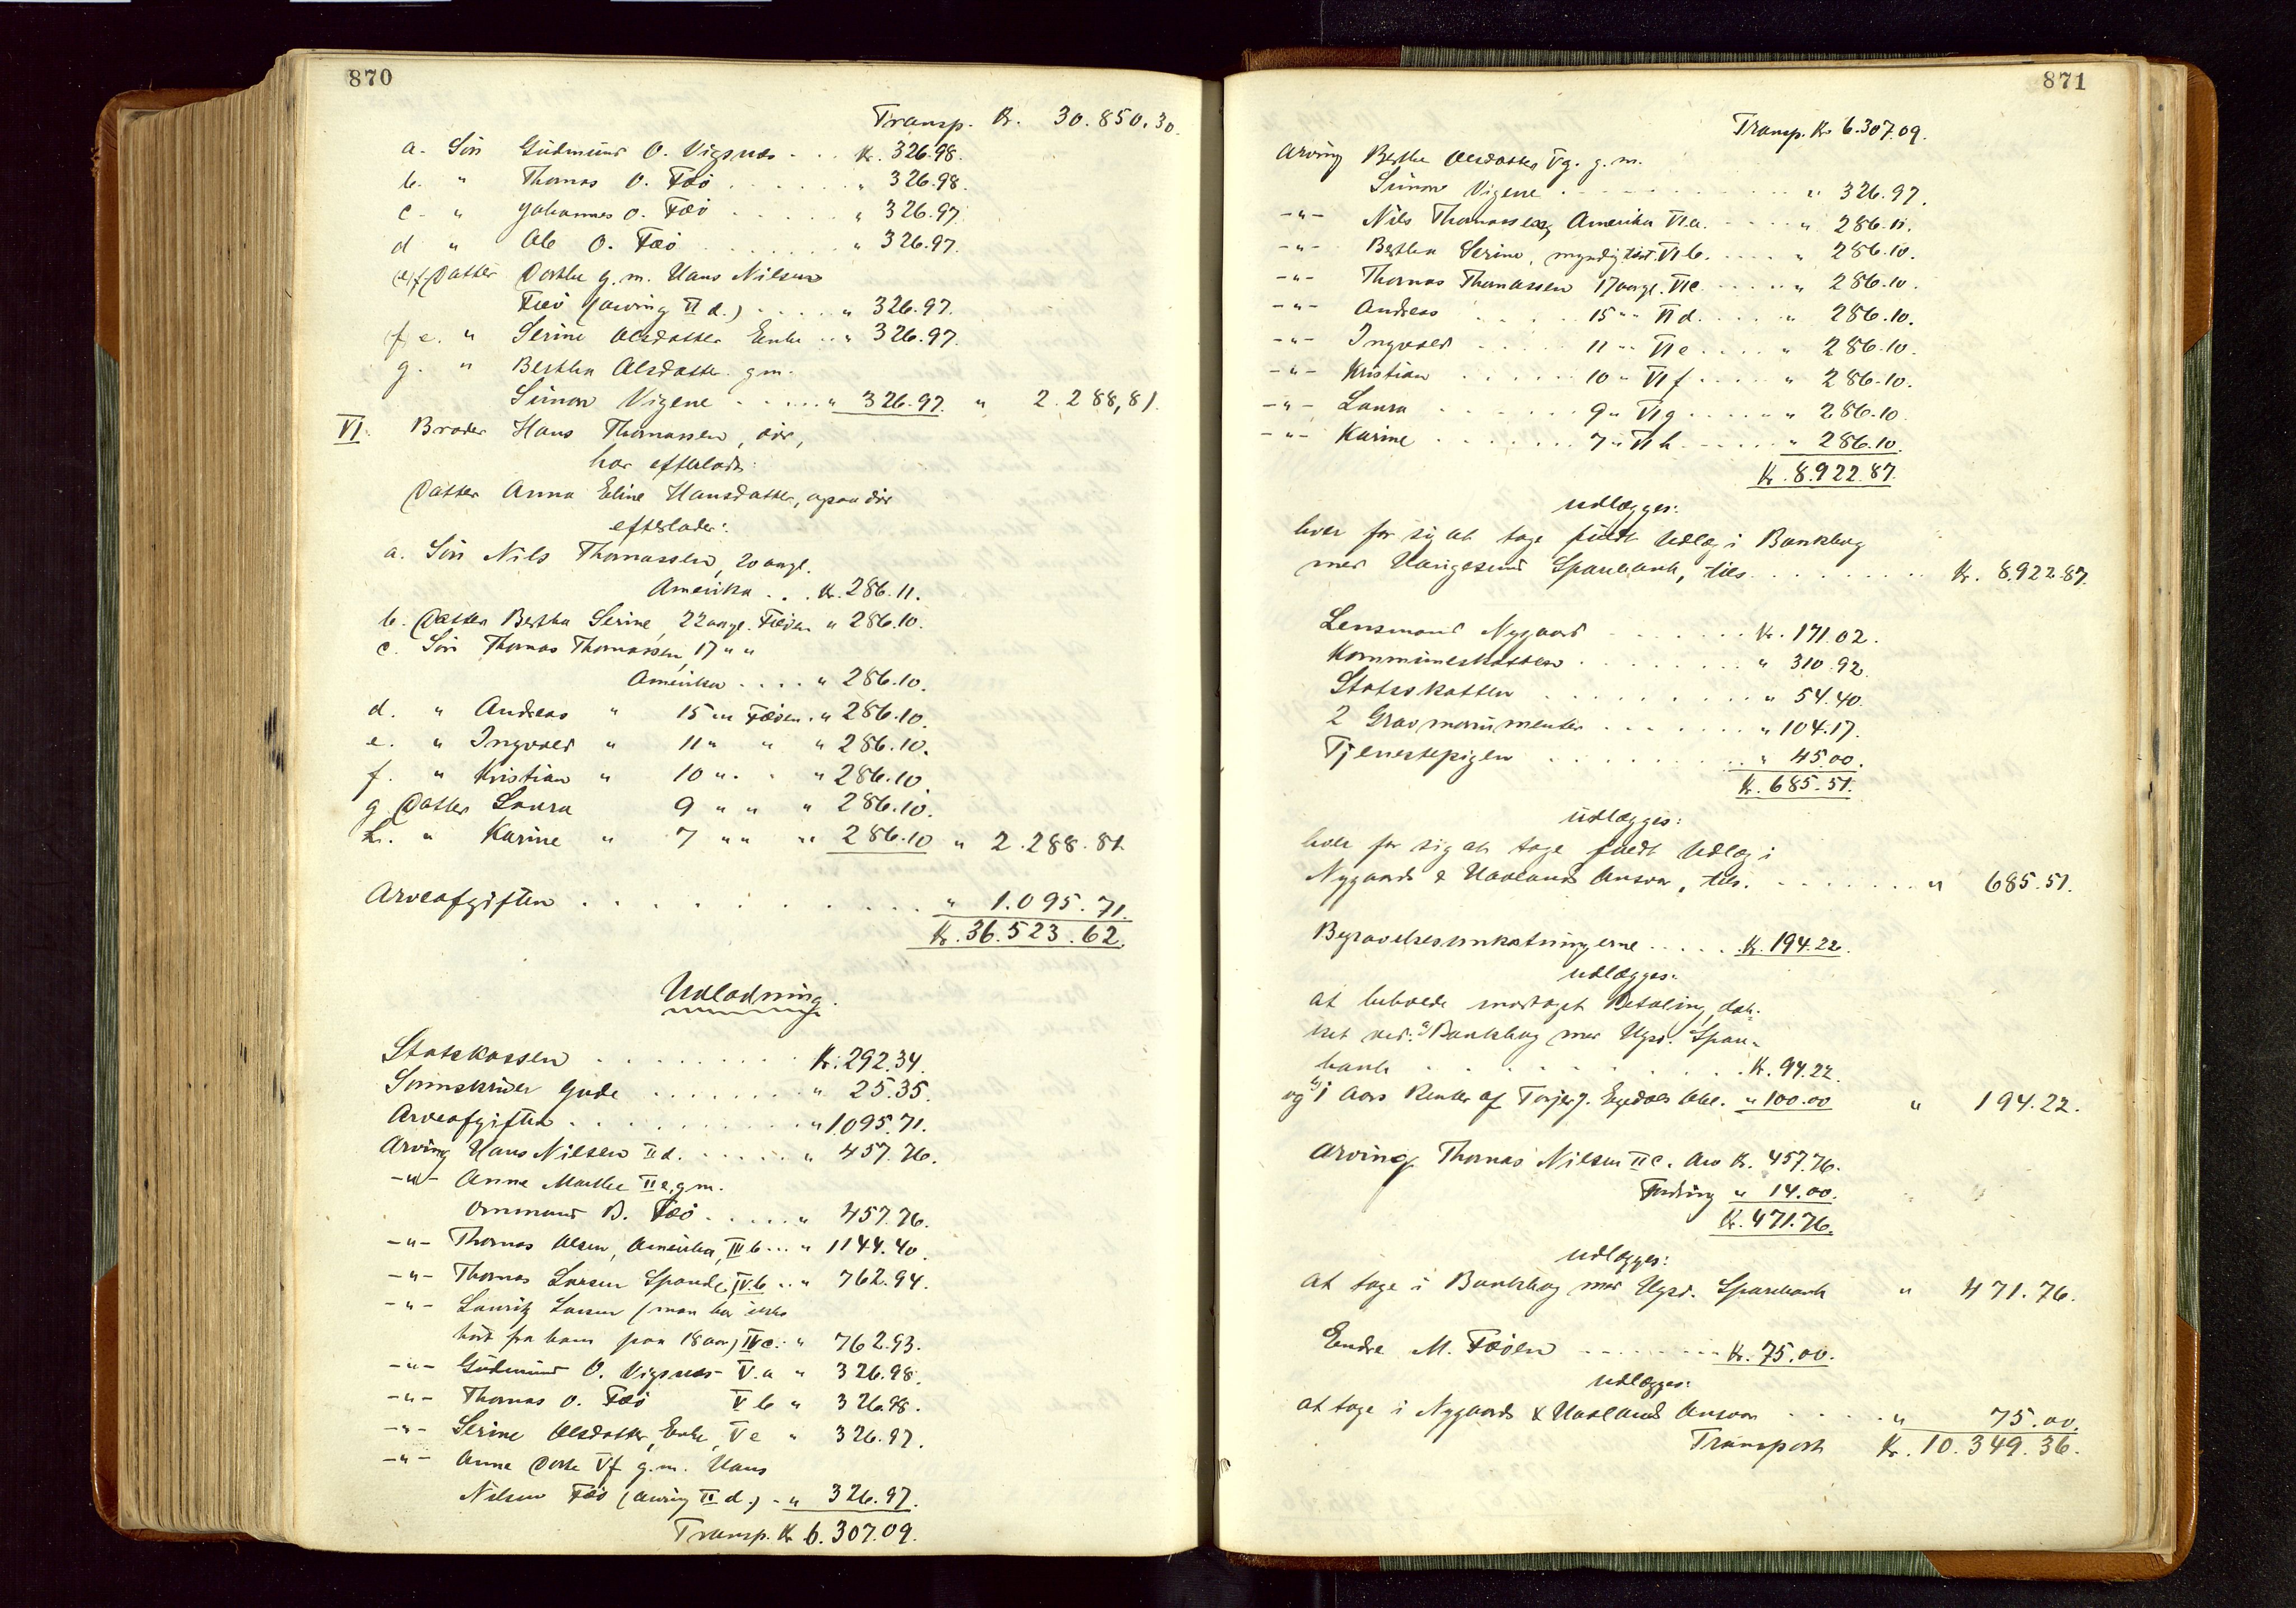 870
Transp. Kr. 30.850.30.
a. Sön Gudmund O. Vigsnæs . . . Kr. 326.98.
b. " Thomas O. Fæö . . . . . . " 326.98.
c. " Johannes O. Fæö . . . . . " 326.97.
d " Ole O. Fæö . . . . . . " 326.97.
(e) f. Datter Dorthe g. m. Hans Nilsen
Fæö (arving II d.) . . . . . " 326.97.
(f) e. " Serine Olsdatter Enke . . " 326.97.
g. " Berthe Olsdatter g m.
Simon Vigene . . . . . " 326.97. " 2.288,81.
VI. Broder Hans Thomassen, död,
har efterladt:
Datter Anna Eline Hansdatter, ogsaa död
efterlader:
a. Sön Nils Thomassen, 20 aargl.
Amerika . . . Kr. 286.11.
b. Datter Bertha Serine, 22 aargl. Fæöen " 286.10.
c. Sön Thomas Thomassen, 17 " "
Amerika . . . . " 286.10.
d. " Andreas " 15 " " Fæöen " 286.10.
e. " Ingvald " 11 " " " 286.10.
f. " Kristian " 10 " " " 286.10.
g. Datter Laura 9 " " " 286.10.
h. " Karine " 7 " " " 286.10 " 2.288.81.
Arveafgiften . . . . . . . . . . " 1.095.71.
Kr. 36.523.62.
Udlodning.
Statskassen . . . . . . . . Kr. 292.34.
Sorinskriver Gude . . . . . . . " 25.35.
Arveafgiften . . . . . . . . . " 1095.71.
Arving Hans Nilsen II d. . . . . . " 457.76.
-"- Anne Marthe II e, g. m.
Ommund B. Fæö . . . . . " 457.76.
-"- Thomas Olsen, Amerika, III b . . . " 1144.40.
-"- Thomas Larsen Spande, IV. b . . " 762.94.
-"- Lauritz Larsen (man har ikke
hört fra ham paa 18 aar) IV c. " 762.93.
-"- Gudmund O. Vigsnæs V. a " 326.98.
-"- Thomas O. Fæö V b " 326.98.
-"- Serine Olsdatter, Enke, V e " 326.97.
-"- Anne Dorte V f g. m. Hans
Nilsen Fæö (arving II d.) - " 326.97.
Transp. Kr 6.307.09.
871
Transp. Kr. 6.307.09.
Arving Berthe Olsdatter V g. g. m.
Simon Vigene . . . . . . . . . . " 326.97.
-"- Nils Thomassen, Amerika VI. a. . . . . " 286.11.
-"- Bertha Serine, myndig VI b. . . . . " 286.10.
-"- Thomas Thomassen 17 aargl. VI c . . . . " 286.10.
-"- Andreas . . . . . 15 " " VI d. . . . . " 286.10.
-"- Ingvald . . . . . 11 " " VI e . . . . " 286.10.
-"- Kristian . . . . . 10 " VI f . . . . " 286.10.
-"- Laura . . . . . . 9 " VI g . . . . " 286.10.
-"- Karine . . . . . . 7 " VI h . . . . . " 286.10.
Kr. 8.922.87.
udlægges:
hver for sig at tage fuldt Udlæg i Bankbog
med Haugesund Sparebank, tils. . . . . . . . . Kr. 8.922.87.
Lensmand Nygaard . . . . . . . Kr. 171.02.
Kommuneskatten . . . . . . . . " 310.92.
Statsskatten . . . . . . . . . " 54.40.
2 Gravmonumenter . . . . . . . " 104.17.
Tjenestepigen . . . . . . . . . " 45.00.
Kr. 685.51.
udlægges:
hver for sig at tage fuldt Udlæg i
Nygaards & Havlands Ansvar, tils. . . . . . . . " 685.51.
Begravelsesomkostningerne . . . . . Kr. 194.22.
udlægges:
at beholde modtaget Betaling, dæk-
ket ved: a) Bankbog med Hgsd. Spare-
bank . . . . . . . . . . Kr. 94.22.
og b) 1 Aars Renter af Torjer J. Engedals Obl. " 100.00 " 194.22.
Arving Thomas Nilsen II c. Arv Kr. 457.76.
Fordring " 14.00.
Kr. 471.76.
udlægges:
at tage i Bankbog med Hgsd. Sparebank " 471.76.
Endre M. Fæöen . . . . . . . Kr. 75.00.
udlægges:
at tage i Nygaards & Havlands Ansvar . . . . . " 75.00.
Transport Kr. 10.349.36.